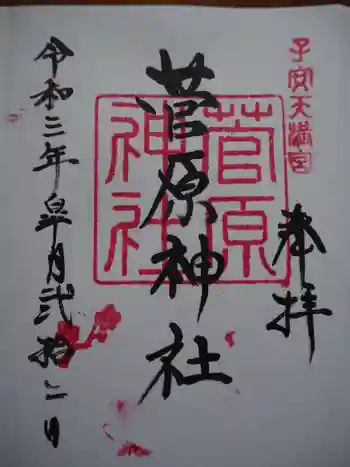 子安天満宮
奉拝
菅原神社
菅原神社
令和三年皐月弐拾二日